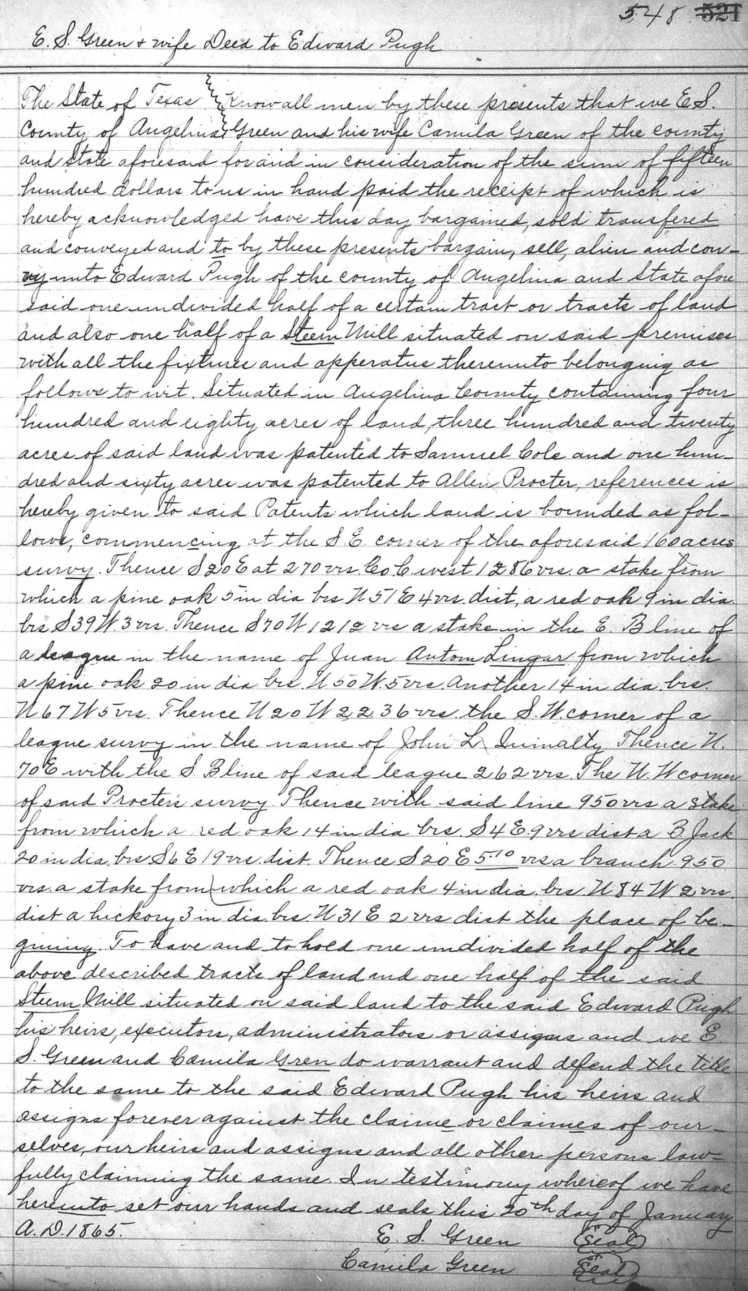 548 521
E. S. Green & wife Deed to Edward Pugh
The State of Texas Know all men by these presents that we E. S.
County of Angelina Green and his wife Camila Green of the county
and State aforesaid for and in consideration of the sum of fifteen
hundred dollars to us in hand paid the receipt of which is
hereby acknowledged have this day bargained, sold transfered
and conveyed and to by these presents bargain, sell, alien and con-
vy unto Edward Pugh of the county of Angelina and State afore
said one undivided half of a certain tract or tracts of land
and also one half of a Steem Mill situated on said premises
with all the fixtures and apperatus thereunto belonging as
follows to wit. Situated in Angelina County containing four
hundred and eighty acres of land, three hundred and twenty
acres of said land was patented to Samuel Cole and one hun-
dred and sixty acres was patented to Allen Procter, references is
hereby given to said Patents which land is bounded as fol-
lows, commencing at the S E. corner of the aforesaid 160 acres
survy. Thence S 20 E at 270 vrs. Co. C west 1286 vrs. a stake from
which a pine oak 5 in dia brs N 51 E 4 vrs. dist, a red oak 9 in dia.
brs S 39 W. 3 vrs. Thence S 70 W 1212 vrs a stake in the E. B line of
a league in the name of Juan Antom Lingar from which
a pine oak 20 in dia brs. N 50 W. 5 vrs. Another 14 in dia brs.
N 67 W 5 vrs. Thence N 20 W 2236 vrs. the S. W. corner of a
league survy in the name of John L Quinalty. Thence N.
70 E with the S B line of said league 262 vrs. The N. W corner
of said Procters survy. Thence with said line 950 vrs a stake
from which a red oak 14 in dia brs. S 4 E. 9 vrs dist a B. Jack
20 in dia, brs S 6 E 19 vrs. dist. Thence S 20 E 510 vrs a branch. 950
vrs. a stake from which a red oak 4 in dia. brs. N 84 W 2 vrs.
dist a hickory 3 in dia brs N 31 E 2 vrs dist the place of be-
gining. To have and to hold one undivided half of the
above described tracts of land and one half of the said
Steem Mill situated on said land to the said Edward Pugh
his heirs, executors, administrators or assigns and we E
S. Green and Camila Gren do warrant and defend the title
to the same to the said Edward Pugh his heirs and
assigns forever against the claime or claimes of our-
selves, our heirs and assigns and all other persons law-
fully claiming the same. In testimony whereof we have
hereinto set our hands and seals this 20th day of January
A. D. 1865. E. S. Green Seal
Camila Green Seal